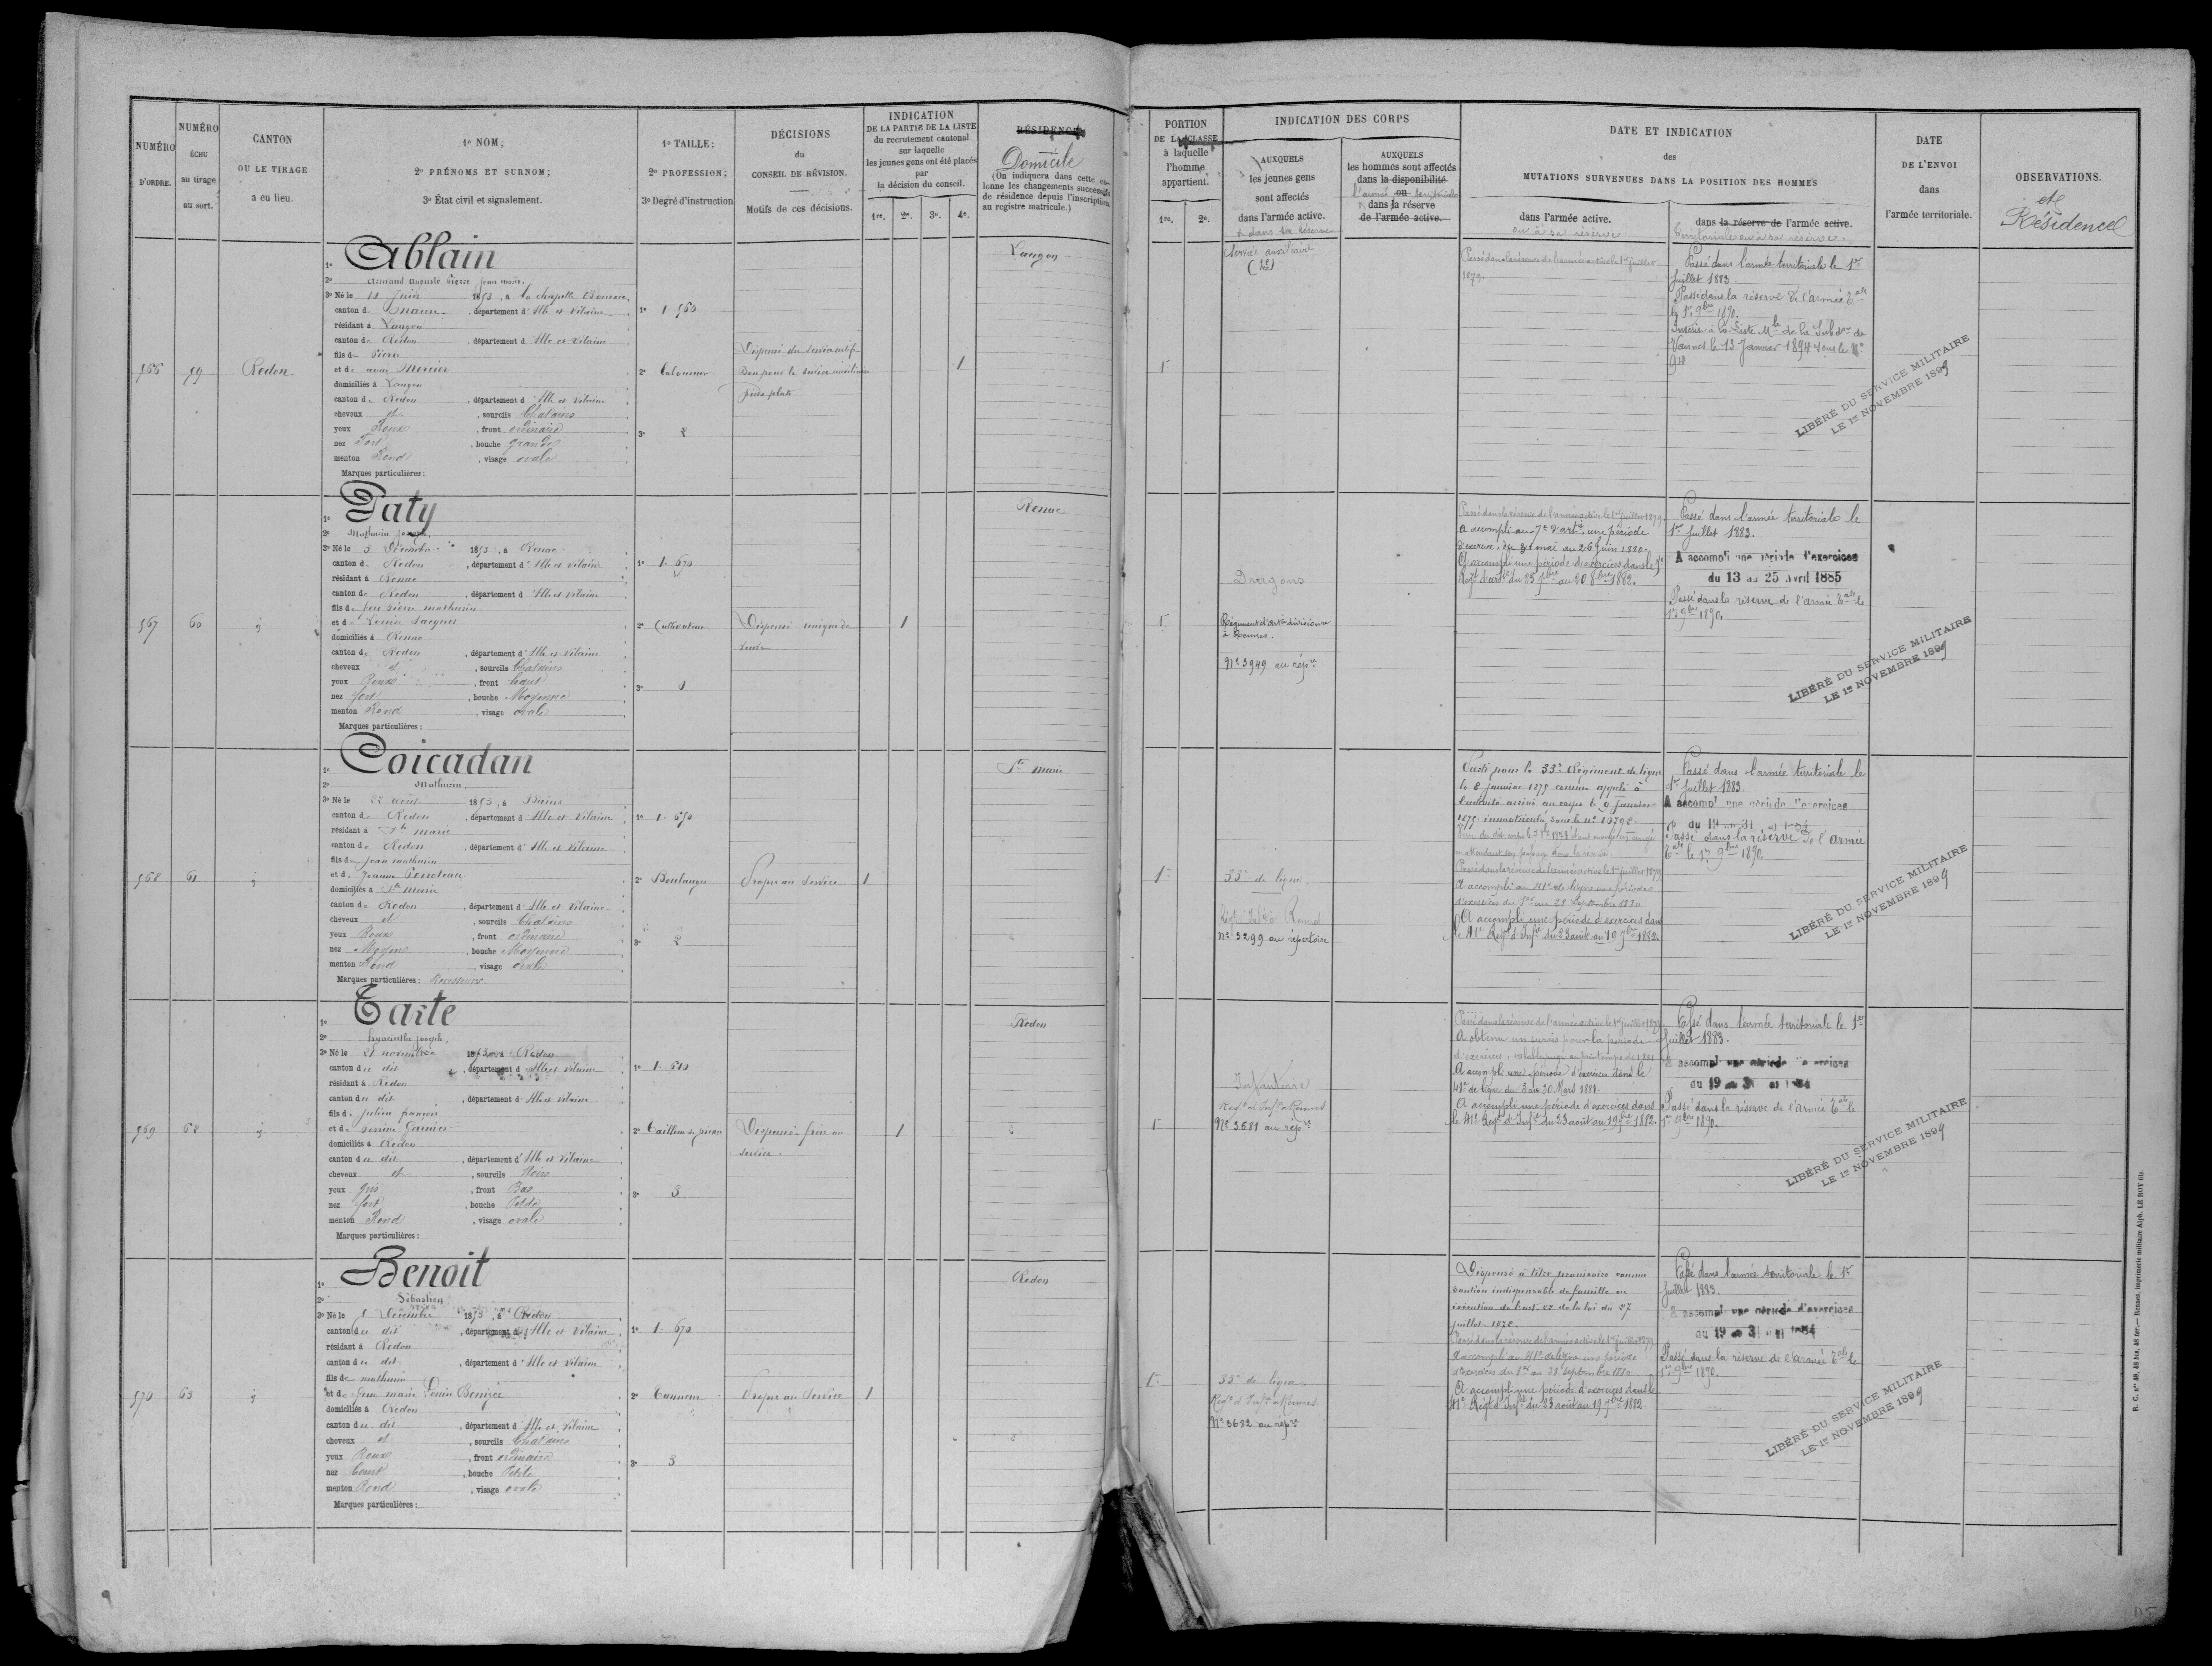 NUMÉRO D'ORDRE.
NUMÉRO ÉCHU au tirage au sort.
CANTON OU LE TIRAGE a eu lieu.
1º NOM;
2º PRÉNOMS ET SURNOM;
3º État civil et signalement.
1º TAILLE;
2º PROFESSION;
3º Degré d'instruction
DÉCISIONS du CONSEIL DE RÉVISION.
Motifs de ces décisions.
INDICATION
DE LA PARTIE DE LA LISTE
du recrutement cantonal
sur laquelle
les jeunes gens ont été placés
par
la décision du conseil.
1re. 2e. 3e. 4e.
RÉSIDENCE
Domicile
(On indiquera dans cette co-
lonne les changements successifs
de résidence depuis l'inscription
au registre matricule.)
PORTION
DE LA CLASSE
à laquelle
l'homme
appartient.
1re. 2e.
INDICATION DES CORPS
AUXQUELS
les jeunes gens
sont affectés
dans l'armée active.
& dans sa réserve
AUXQUELS
les hommes sont affectés
dans la disponibilité
l'armée ou territoriale
dans la réserve
de l'armée active.
DATE ET INDICATION
des
MUTATIONS SURVENUES DANS LA POSITION DES HOMMES
dans l'armée active.
ou à sa réserve
dans la réserve de l'armée active.
Territoriale ou à sa réserve.
DATE
DE L'ENVOI
dans
l'armée territoriale.
OBSERVATIONS.
et
Résidence
566 59 Redon
1º Ablain
2º Armand Auguste Pierre Jean Marie
3º Né le 10 Juin 1853, à la chapelle Bouexic
canton de Maure, département d'Ille et Vilaine
résidant à Langon
canton de Redon, département d Ille et Vilaine
fils de Pierre
et de anne Mercier
domiciliés à Langon
canton de Redon, département d Ille et Vilaine
cheveux et, sourcils Chatains
yeux Roux, front ordinaire
nez Fort, bouche grande
menton Rond, visage ovale
Marques particulières:
1º 1. 560
2º Laboureur
3º 2
Dispensé du service actif
Bon pour le service auxiliaire
pieds plats
1
Langon
1
Service auxiliaire
Passé dans la réserve de l'armée active le 1er Juillet
1879.
Passé dans l'armée territoriale le 1er
Juillet 1883.
Passé dans la réserve de l'armée Tale
le 1er 9bre 1890.
Inscrit à la liste Mle de la Subdon de
Vannes le 13 Janvier 1894 sous le No
LIBÉRÉ DU SERVICE MILITAIRE
LE 1er NOVEMBRE 1899
567 60 id
1º Paty
2º Mathurin Joseph
3º Né le 3 Décembre 1853, à Renac
canton de Redon, département d'Ille et Vilaine
résidant à Renac
canton de Redon, département d Ille et Vilaine
fils de feu Pierre mathurin
et de Louise Jacques
domiciliés à Renac
canton de Redon, département d'Ille et Vilaine
cheveux et, sourcils Chatains
yeux Roux, front haut
nez fort, bouche Moyenne
menton Rond, visage ovale
Marques particulières:
1º 1. 670
2º Cultivateur
3º 1
Dispensé unique de
veuve
1
Renac
1
Dragons
Régiment d'Artie divisionre
à Rennes.
No 3949 au répre
Passé dans la réserve de l'armée active le 1er juillet 1879.
A accompli au 7e d'artie une période
d'exercices du 31 mai au 26 Juin 1880.
A accompli une période d'exercices dans le 7e
Régt d'artie du 23 7bre au 20 8bre 1882.
Passé dans l'armée territoriale le
1er Juillet 1883.
A accompli une période d'exercices
du 13 au 25 avril 1885
Passé dans la réserve de l'armée Tale le
1er 9bre 1890.
LIBÉRÉ DU SERVICE MILITAIRE
LE 1er NOVEMBRE 1899
568 61 id
1º Coicadan
2º Mathurin
3º Né le 22 août 1853, à Bains
canton de Redon, département d'Ille et Vilaine
résidant à Ste marie
canton de Redon, département d'Ille et Vilaine
fils de Jean mathurin
et de Jeanne
domiciliés à Ste Marie
canton de Redon, département d'Ille et Vilaine
cheveux et, sourcils Chatains
yeux Roux, front ordinaire
nez Moyen, bouche Moyenne
menton Rond, visage ovale
Marques particulières: Rousseurs
1º 1. 670
2º Boulanger
3º 2
Propre au Service
1
Ste marie
1
33e de ligne
Régt Infie à Rennes
No 3299 au répertoire
Parti pour le 33e Régiment de ligne
le 8 janvier 1875 comme appelé à
l'activité arrivé au corps le 9 Janvier
1875 immatriculé sous le no
en attendant son passage dans la réserve.
Passé dans la réserve de l'armée active le 1er juillet 1879
A accompli au 41e de ligne une période
d'exercices du 1er au 28 Septembre 1880
A accompli une période d'exercices dans
le 41e Régt d'Infie du 23 août au 19 7bre 1882.
Passé dans l'armée territoriale le
1er Juillet 1883
A accompli une période d'exercices
du 19 au 31 mai 1884
Passé dans la réserve de l'armée
Tale le 1er 9bre 1890.
LIBÉRÉ DU SERVICE MILITAIRE
LE 1er NOVEMBRE 1899
569 62 id
1º Taste
2º hyacinthe joseph
3º Né le 21 novembre 1853, à Redon
canton du dit, département d'Ille et Vilaine
résidant à Redon
canton du dit, département d'Ille et Vilaine
fils de Julien françois
et de Perrine Garnier
domiciliés à Redon
canton du dit, département d'Ille et Vilaine
cheveux et, sourcils Noirs
yeux gris, front Bas
nez fort, bouche Petite
menton Rond, visage ovale
Marques particulières:
1º
2º Tailleur de pierre
3º 3
Dispensé frère au
service.
1
Redon
1
Infanterie
Régt d'Infie à Rennes
No 3681 au répre
Passé dans la réserve de l'armée active le 1er juillet 1879
A obtenu un sursis pour la période
d'exercices, valable jusqu'au printemps de 1881
A accompli une période d'exercices dans le
41e de ligne du 3 au 30 Mars 1881.
A accompli une période d'exercices dans
le 41e Régt d'Infie du 23 août au 19 7bre 1882.
Passé dans l'armée territoriale le 1er
Juillet 1883.
A accompli une période d'exercices
du 19 au 31 mai 1884
Passé dans la réserve de l'armée Tale le
1er 9bre 1890.
LIBÉRÉ DU SERVICE MILITAIRE
LE 1er NOVEMBRE 1899
570 63 id
1º Benoit
2º Sébastien
3º Né le 1 Décembre 1853, à Redon
canton du dit, département d'Ille et Vilaine
résidant à Redon
canton du dit, département d'Ille et Vilaine
fils de mathurin
et de feue marie Louise
domiciliés à Redon
canton du dit, département d'Ille et Vilaine
cheveux et, sourcils Chatains
yeux Roux, front ordinaire
nez Court, bouche Petite
menton Rond, visage ovale
Marques particulières:
1º 1. 670
2º Tanneur
3º 3
Propre au Service
1
Redon
1
33e de ligne
Régt d'Infie à Rennes.
No 3682 au répre
Dispensé à titre provisoire comme
soutien indispensable de famille en
exécution de l'art. 22 de la loi du 27
juillet 1872.
Passé dans la réserve de l'armée active le 1er juillet 1879
A accompli au 41e de ligne une période
d'exercices du 1er au 28 Septembre 1880
A accompli une période d'exercices dans le
41e Régt d'Infie du 23 août au 19 7bre 1882
Passé dans l'armée territoriale le 1er
Juillet 1883.
A accompli une période d'exercices
du 19 au 31 mai 1884
Passé dans la réserve de l'armée Tale le
1er 9bre 1890.
LIBÉRÉ DU SERVICE MILITAIRE
LE 1er NOVEMBRE 1899
R. C. nos 48, 48 bis, 48 ter. — Rennes, imprimerie militaire Alph. LE ROY fils.
115